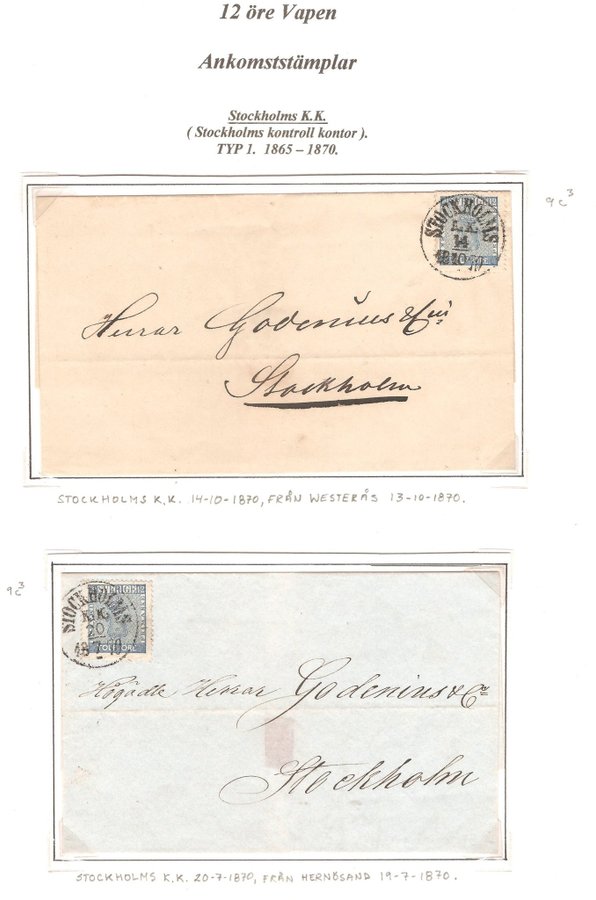 12 öre Vapen
Ankomststämplar
Stockholms K.K.
( Stockholms kontroll kontor ).
TYP 1. 1865 – 1870.
9c³
STOCKHOLMS
K.K.
14
10
Herrar Godenius & Co
Stockholm
STOCKHOLMS K.K. 14-10-1870, FRÅN WESTERÅS 13-10-1870.
9c³
SVERIGE
STOCKHOLMS
K.K.
20
7
TOLF ÖRE
Högädle Herrar Godenius & Co
Stockholm
STOCKHOLMS K.K. 20-7-1870, FRÅN HERNÖSAND 19-7-1870.